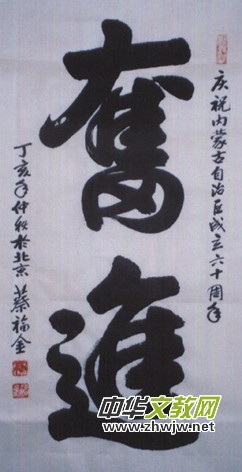 庆祝内蒙古自治区成立六十周年
奮進
丁亥年仲秋於北京 蔡福金
中华文教网
www.zhwjw.net